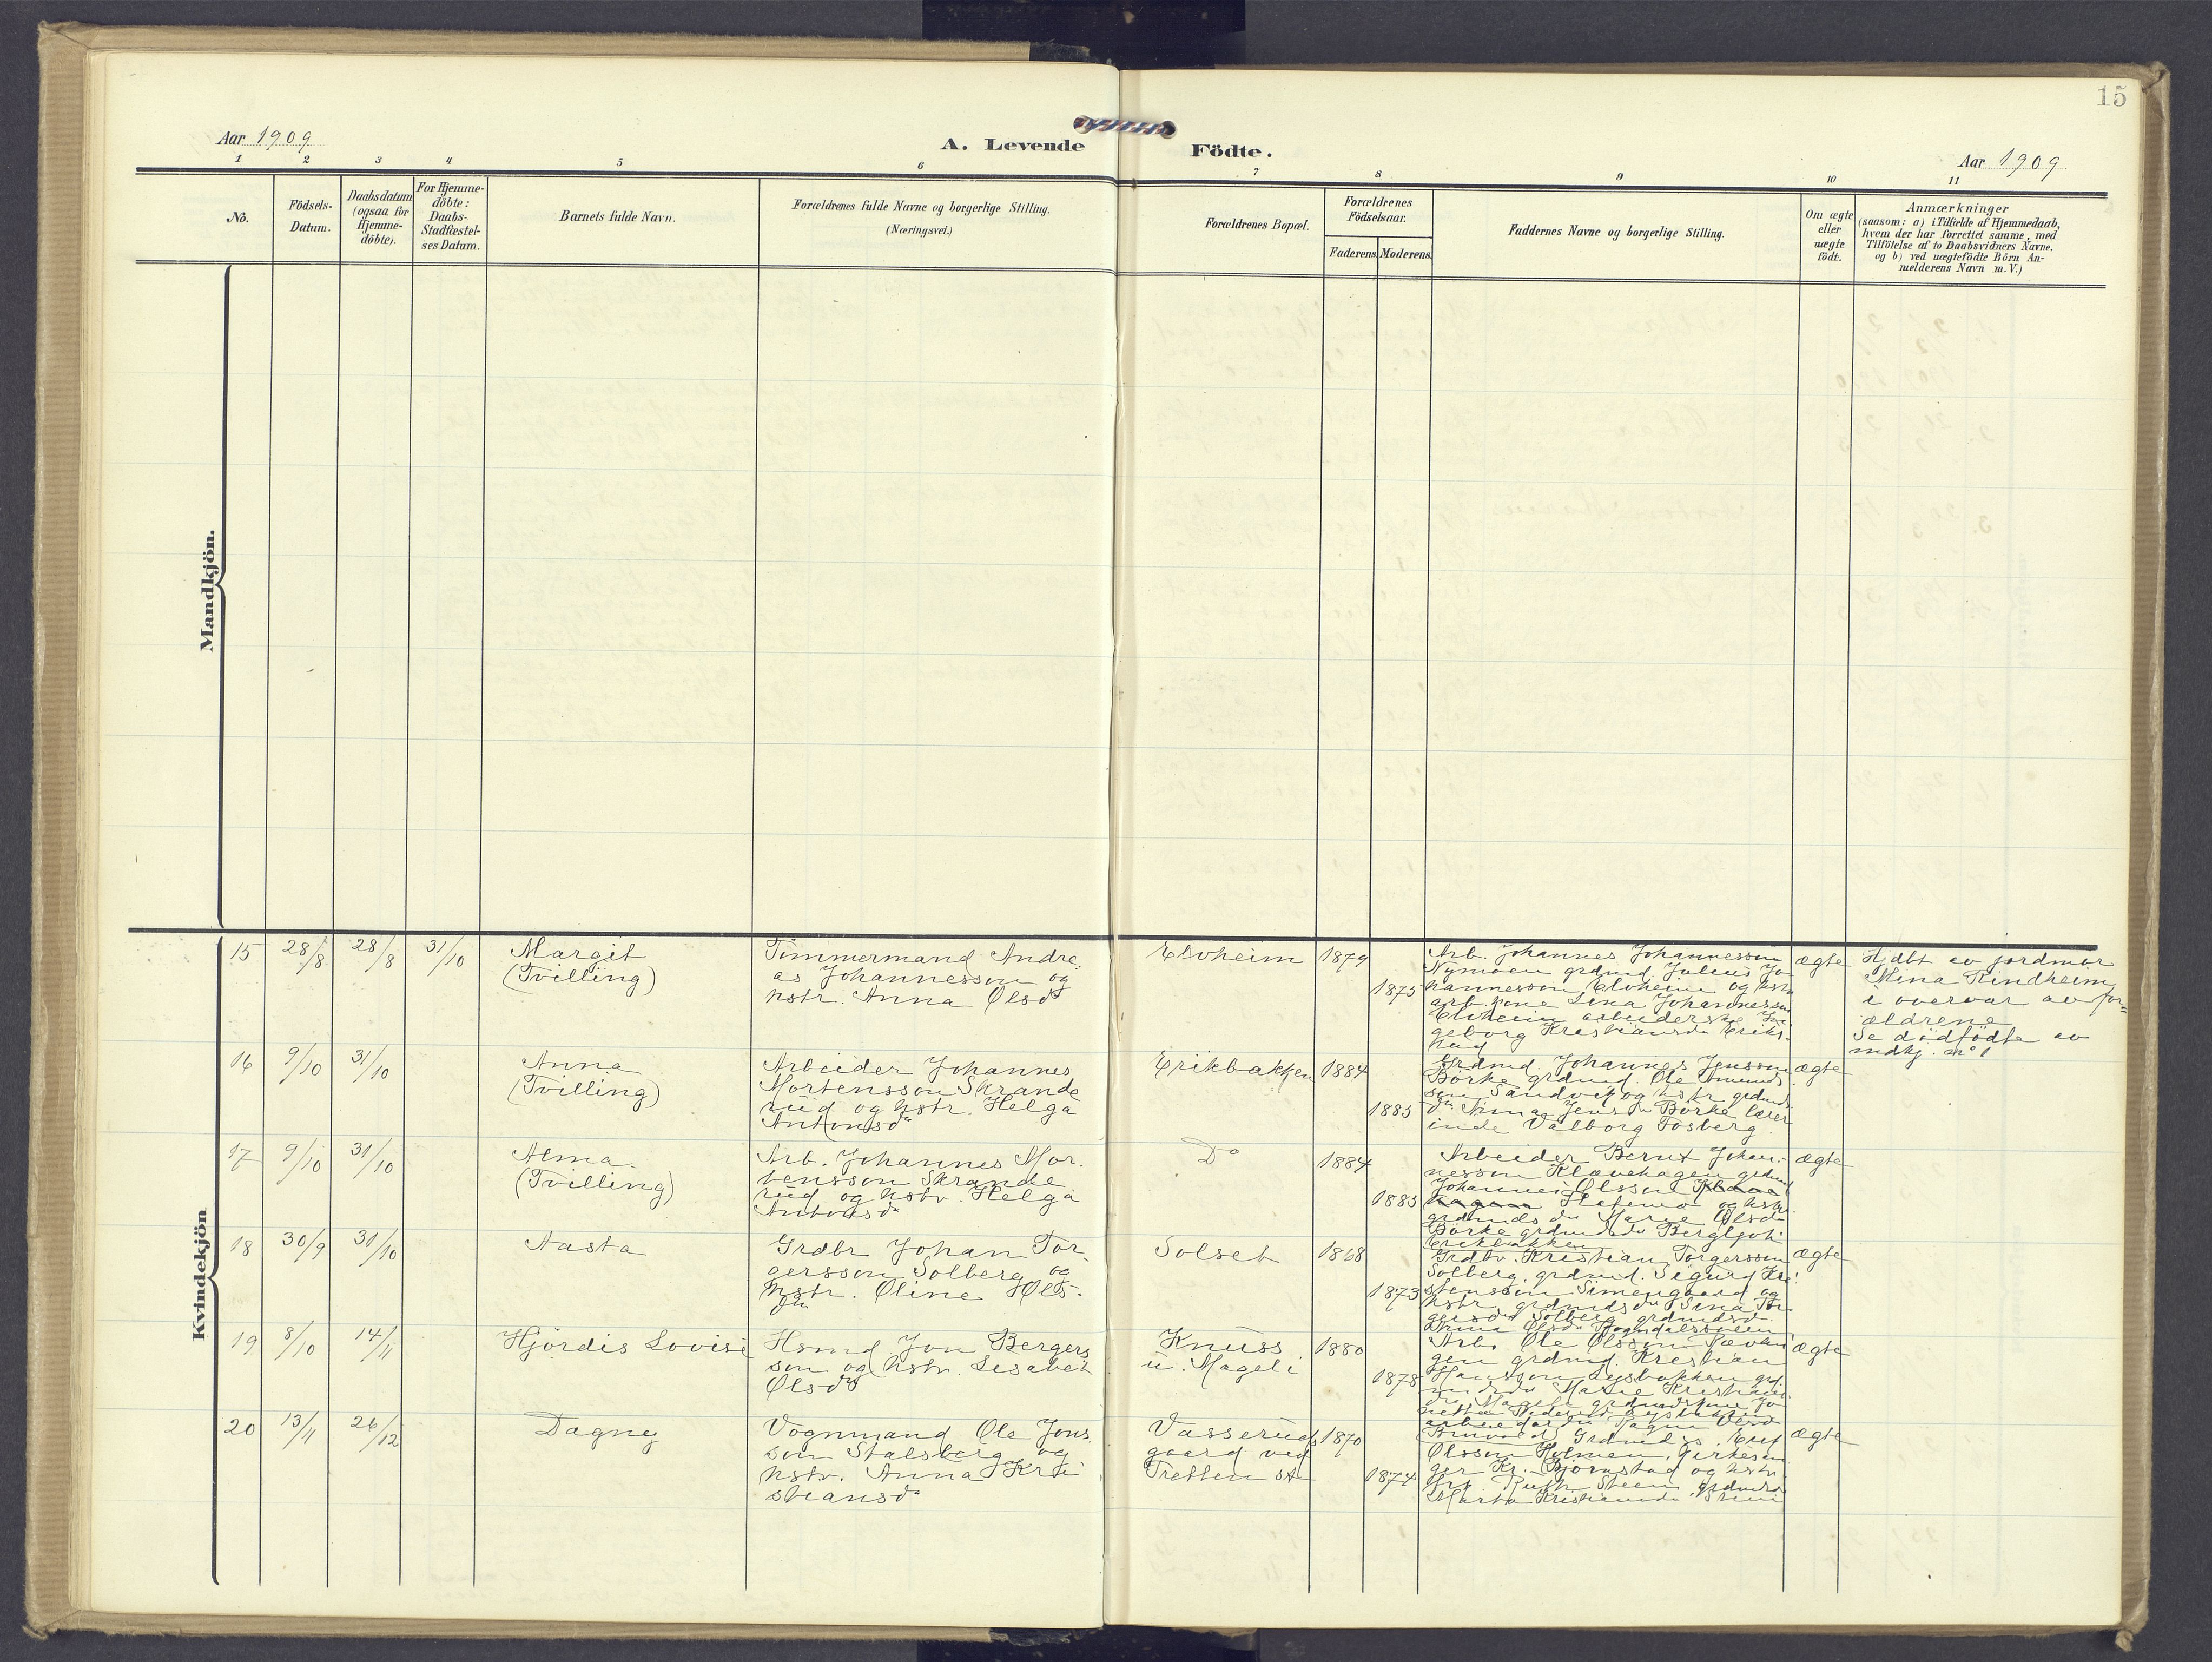 15
Aar 1909
A. Levende
Födte.
Aar 1909
1 2 3 4 5 6 7 8 9 10 11
No.
Födsels-
Datum.
Daabsdatum
(ogsaa for
Hjemme-
döbte).
For Hjemme-
döbte:
Daabs-
Stadfæstel-
ses Datum.
Barnets fulde Navn.
Forældrenes fulde Navne og borgerlige Stilling.
(Næringsvei.)
Forældrenes Bopæl.
Forældrenes
Födselsaar.
Faderens. Moderens.
Faddernes Navne og borgerlige Stilling.
Om ægte
eller
uægte
födt.
Anmærkninger
(saasom: a) i Tilfælde af Hjemmedaab,
hvem der har forrettet samme, med
Tilföielse af to Daabsvidners Navne.
og b) ved uægtefödte Börn An-
melderens Navn m.V.)
Mandkjön.
Kvindekjön
15 28/8 28/8 31/10
Margit
(Tvilling)
Timmermand Andre
as Johannesson og
hstr. Anna Olsdr
Elvheim
1879
1875
Arb. Johannes Johannesson
Nymoen grdmd. Julius Jo-
hannesson Elvheim og hstr
arb. kone Lina Johannesson
Elvheim arbeiderske In-
geborg Kristiansdr Eriks-
rud
ægte
Hjdbt av jordmor
Mina Kindheim
i overvær av for-
ældrene
Se dödfödte av
mdkj. no 1
16 9/10 31/10
Anna
(Tvilling)
Arbeider Johannes
Mortensson Skrande
rud og hstr. Helga
Antonsdr
Erikbakken
1884
1883
Grdmd. Johannes Jensson
Börke grdmd. Ole Amunds
son Sandvik og hstr grdmds
dr Anna Jensdr Börke lærer
inde Valborg Fosberg.
ægte
17 9/10 31/10
Alma
(Tvilling)
Arb. Johannes Mor-
tensson Skrande
rud og hstr. Helga
Antonsdr
Do
1884
1883
Arbeider Bernt Johan-
nesson Klævehagen grdmd
Johannes Olsson
og hstr.
grdmds dr Marie Olsdr
Börke grdmds dr Bergljot
Erikbakken
ægte
18 30/9 31/10
Aasta
Grdbr Johan Tor
gersson Solberg og
hstr. Oline Ols-
dr
Solset
1868
1873
Grdbr. Kristian Torgersson
Solberg, grdmd. Sigurd Kri-
stensson Simengaard og
hstr. grdmds dr Sina Tor
gersdr Solberg grdmdsd.
Anna Olsdr
ægte
19 8/10 14/11
Hjördis Lovise
Hsmd Jon Bergers
son og hstr. Lisabet
Olsdr
Knuss
u. Mageli
1880
1878
Arb. Ole Olsson
gen grdmd. Kristian
Hansson
Marie Kristian
dr Mageli grdmdskone Jo
ægte
20 13/11 26/12
Dagny
Vognmand Ole Jons
son Stalsberg og
hstr. Anna Kri
stiansdr
Vasserud
gaard ved
Tretten st
1870
1874
Grdmd.
Olsson Holmen, kirkesan
ger Kr. Bjørnstad og hstr.
Frk. Ruth Steen grdmds
Marta Kristiansdr
ægte